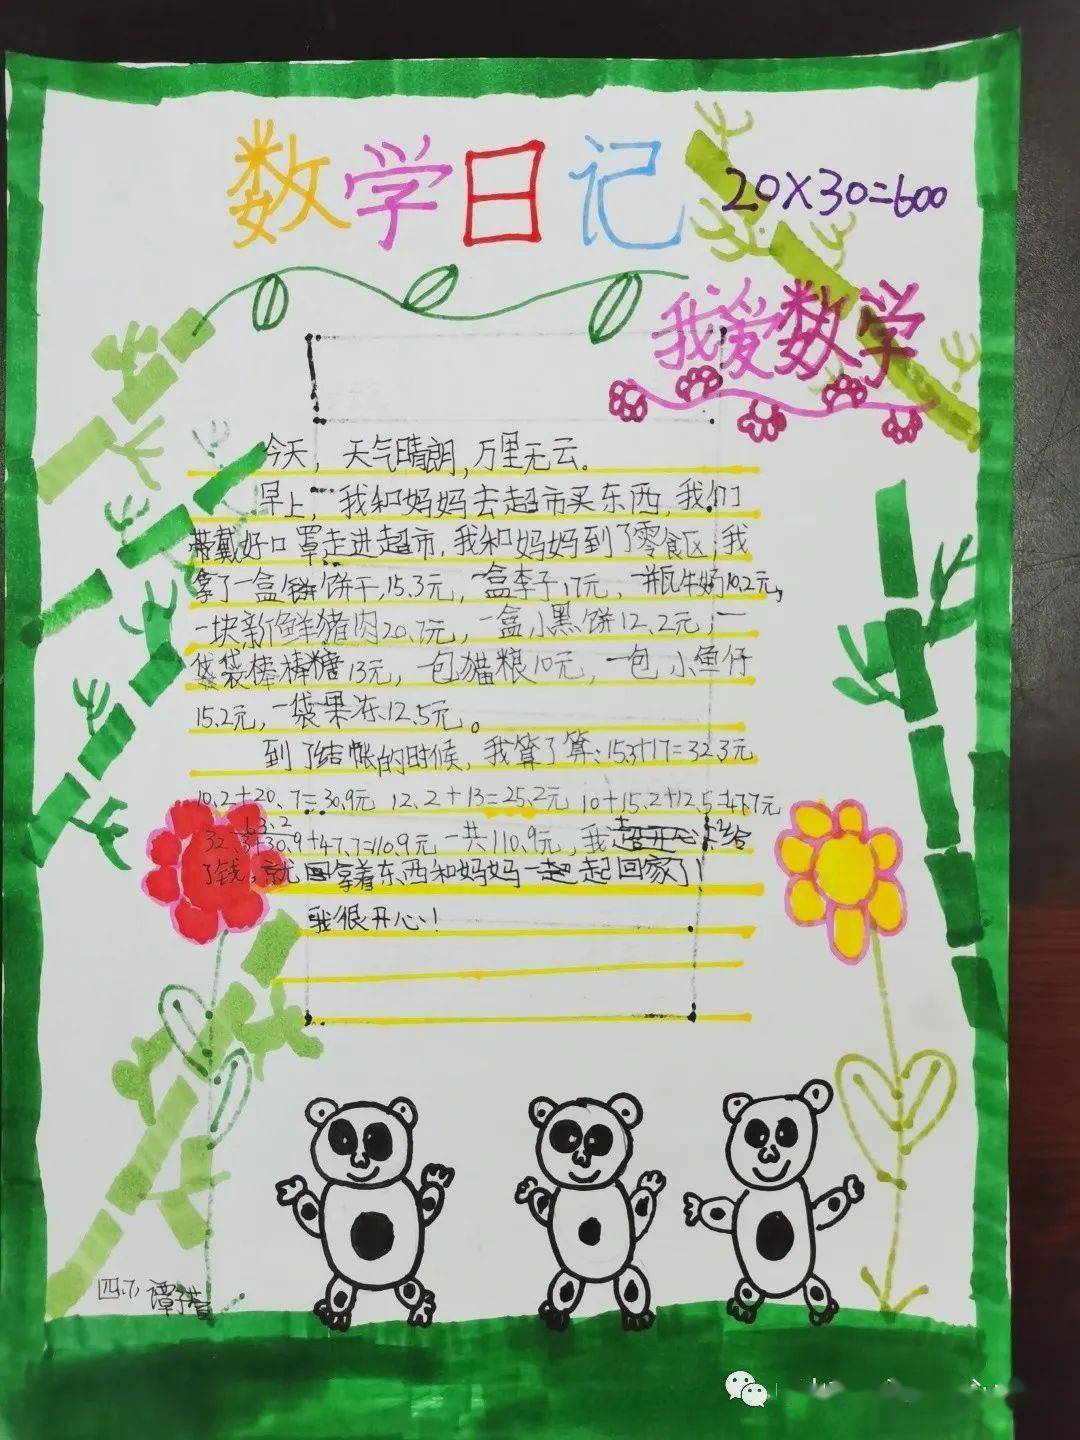 数学日记
20×30=600
我爱数学
今天，天气晴朗，万里无云。
早上，我和妈妈去超市买东西，我们
带戴好口罩走进超市，我和妈妈到了零食区，我
拿了一盒饼饼干15.3元，一盒李子17元，一瓶牛奶10.2元，
一块新鲜猪肉20.7元，一盒小黑饼12.2元，一
袋袋棒棒糖13元，一包猫粮10元，一包小鱼仔
15.2元，一袋果冻12.5元。
到了结帐的时候，我算了算：15.3+17=32.3元
10.2+20.7=30.9元 12.2+13=25.2元 10+15.2+12.5=47.7元
32.3+30.9+47.7=110.9元 一共110.9元，我给
了钱，就拿着东西和妈妈一起起回家了！
我很开心！
四.